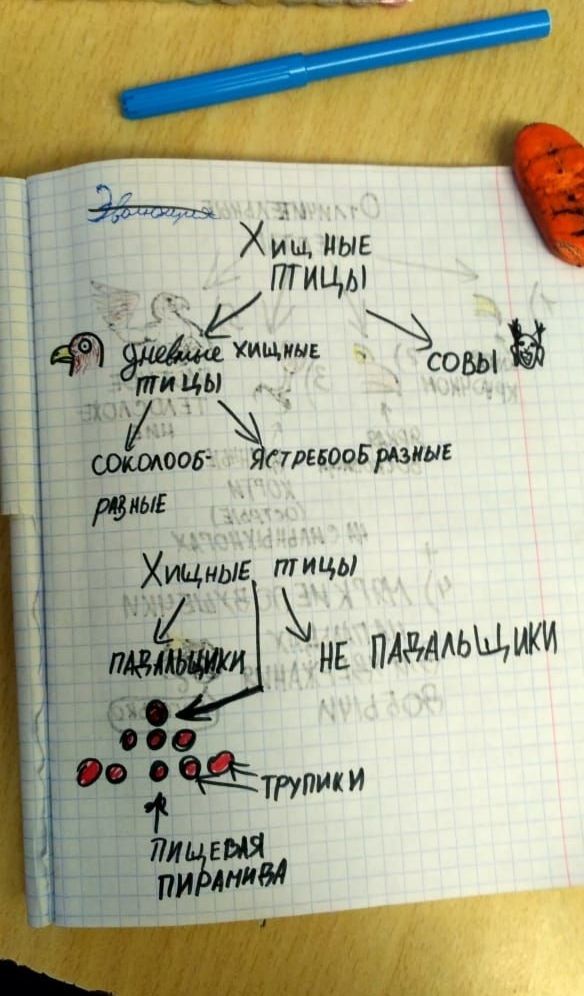 Эволюция
Хищные
птицы
дневные хищные
птицы
совы
соколооб-
разные
ястребообразные
Хищные птицы
падальщики
не падальщики
трупики
пищевая
пирамива